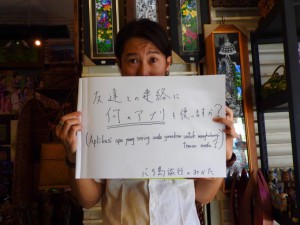 友達との連絡に
何のアプリを使いますか?
(Aplikasi apa yang sering anda gunakan untuk menghubungi
teman anda?)
バリ島旅行のみかた